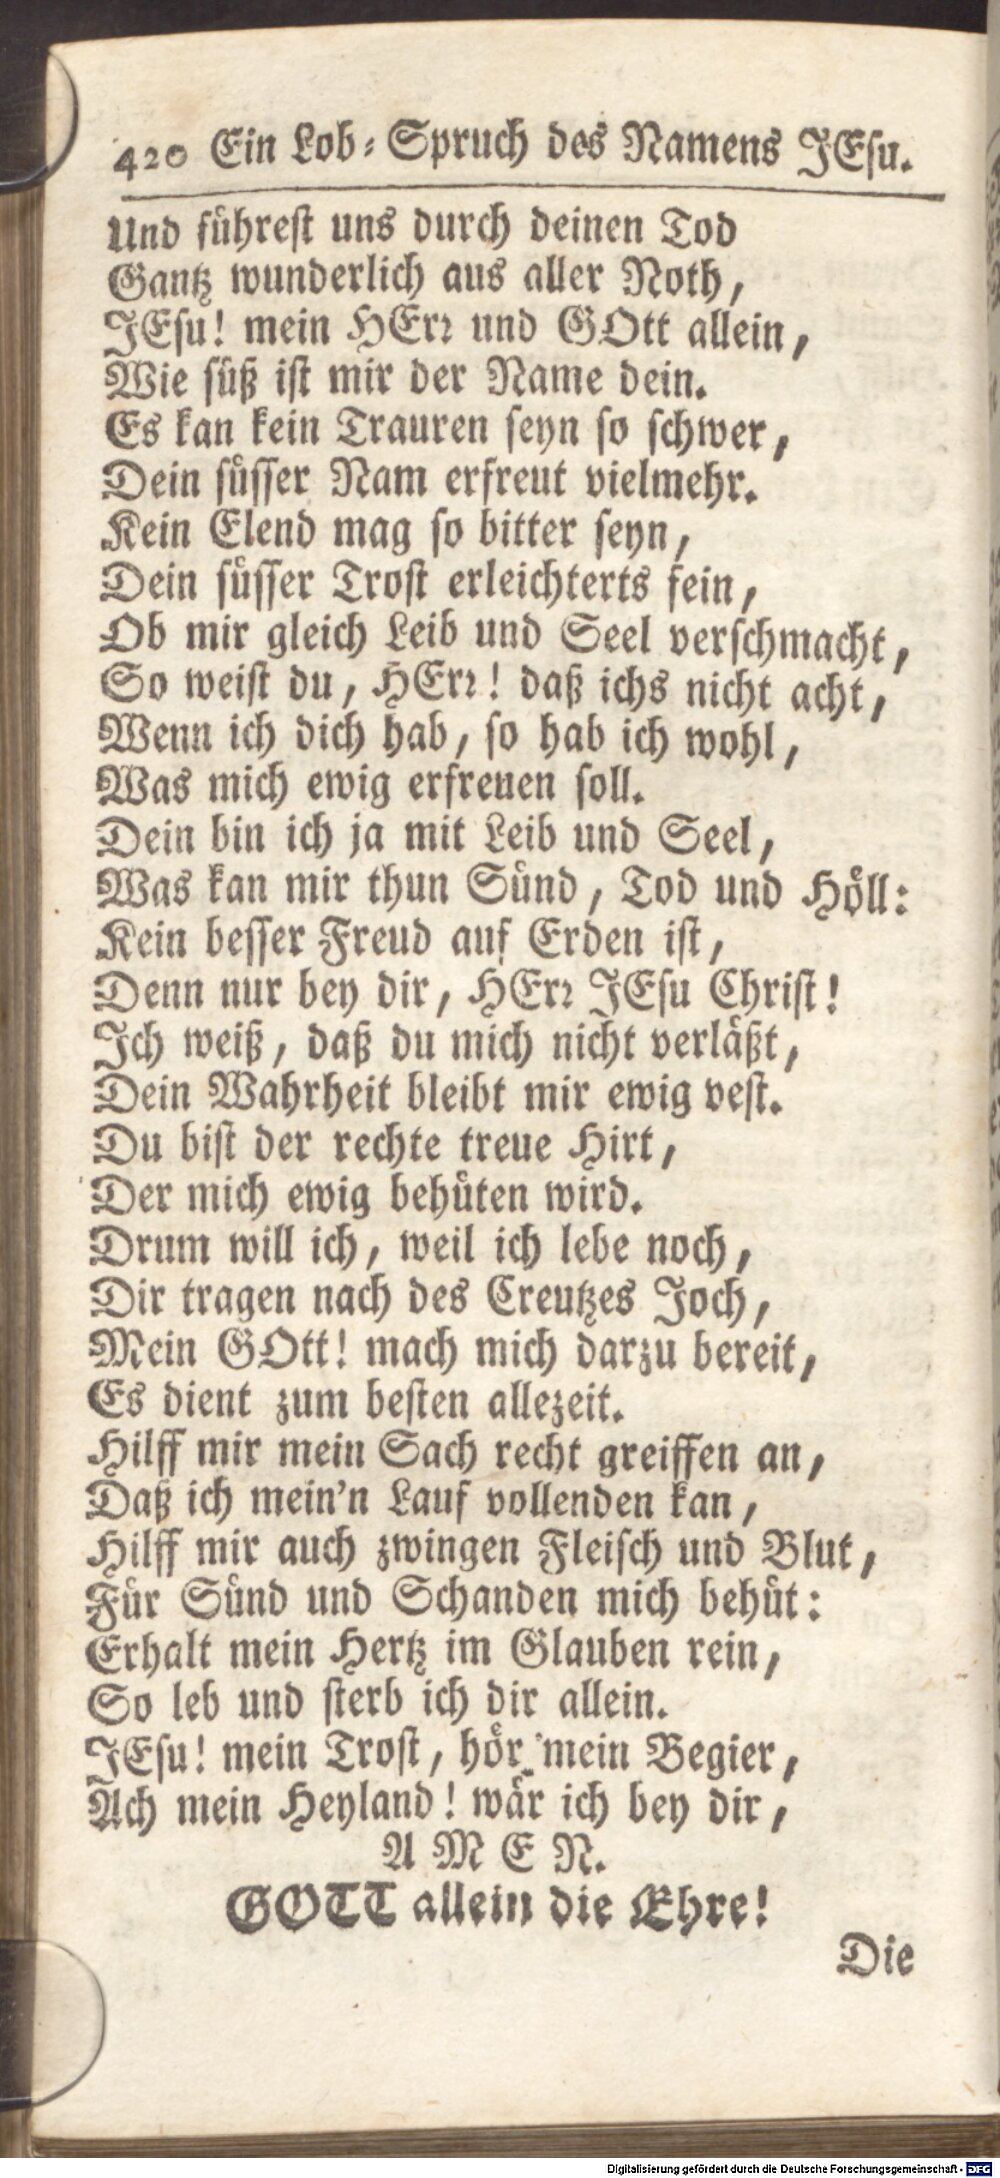 420 Ein Lob-Spruch des Namens JEsu.
Und führest uns durch deinen Tod
Gantz wunderlich aus aller Noth,
JEsu! mein HErr und GOtt allein,
Wie süß ist mir der Name dein.
Es kan kein Trauren seyn so schwer,
Dein süsser Nam erfreut vielmehr.
Kein Elend mag so bitter seyn,
Dein süsser Trost erleichterts fein,
Ob mir gleich Leib und Seel verschmacht,
So weist du, HErr! daß ichs nicht acht,
Wenn ich dich hab, so hab ich wohl,
Was mich ewig erfreuen soll.
Dein bin ich ja mit Leib und Seel,
Was kan mir thun Sünd, Tod und Höll:
Kein besser Freud auf Erden ist,
Denn nur bey dir, HErr JEsu Christ!
Ich weiß, daß du mich nicht verläßt,
Dein Wahrheit bleibt mir ewig vest.
Du bist der rechte treue Hirt,
Der mich ewig behüten wird.
Drum will ich, weil ich lebe noch,
Dir tragen nach des Creutzes Joch,
Mein GOtt! mach mich darzu bereit,
Es dient zum besten allezeit.
Hilff mir mein Sach recht greiffen an,
Daß ich mein'n Lauf vollenden kan,
Hilff mir auch zwingen Fleisch und Blut,
Für Sünd und Schanden mich behüt:
Erhalt mein Hertz im Glauben rein,
So leb und sterb ich dir allein.
JEsu! mein Trost, hör mein Begier,
Ach mein Heyland! wär ich bey dir,
A M E N.
GOTT allein die Ehre!
Die
Digitalisierung gefördert durch die Deutsche Forschungsgemeinschaft - DFG